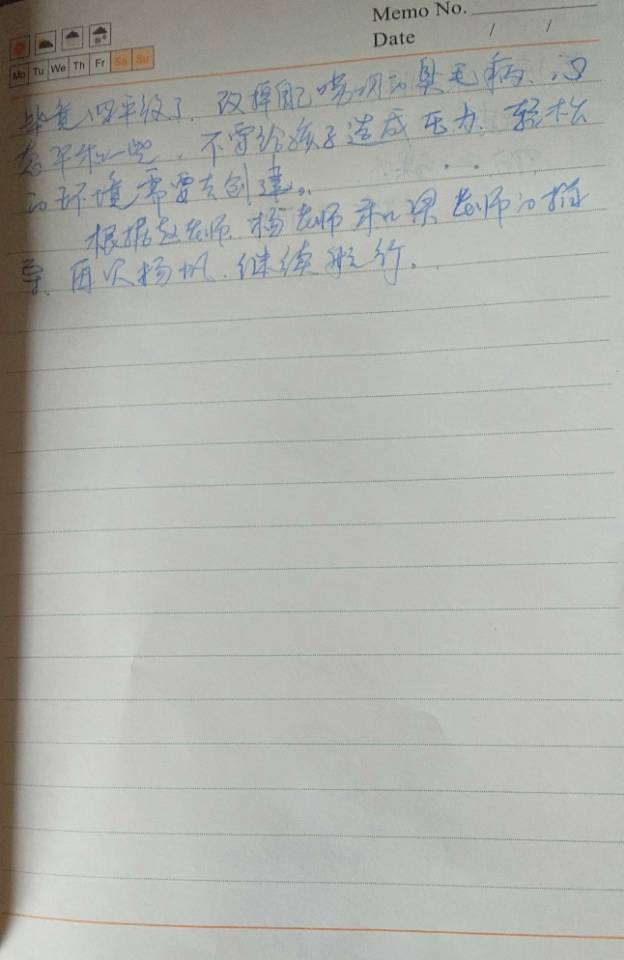 Memo No.
Date / /
Mo Tu We Th Fr Sa Su
毕竟四年级了，改掉自己唠叨的臭毛病，心
态平和一些，不要给孩子造成压力，轻松
的环境需要去创建。
根据赵老师、杨老师和梁老师的指
导，再次扬帆，继续航行。